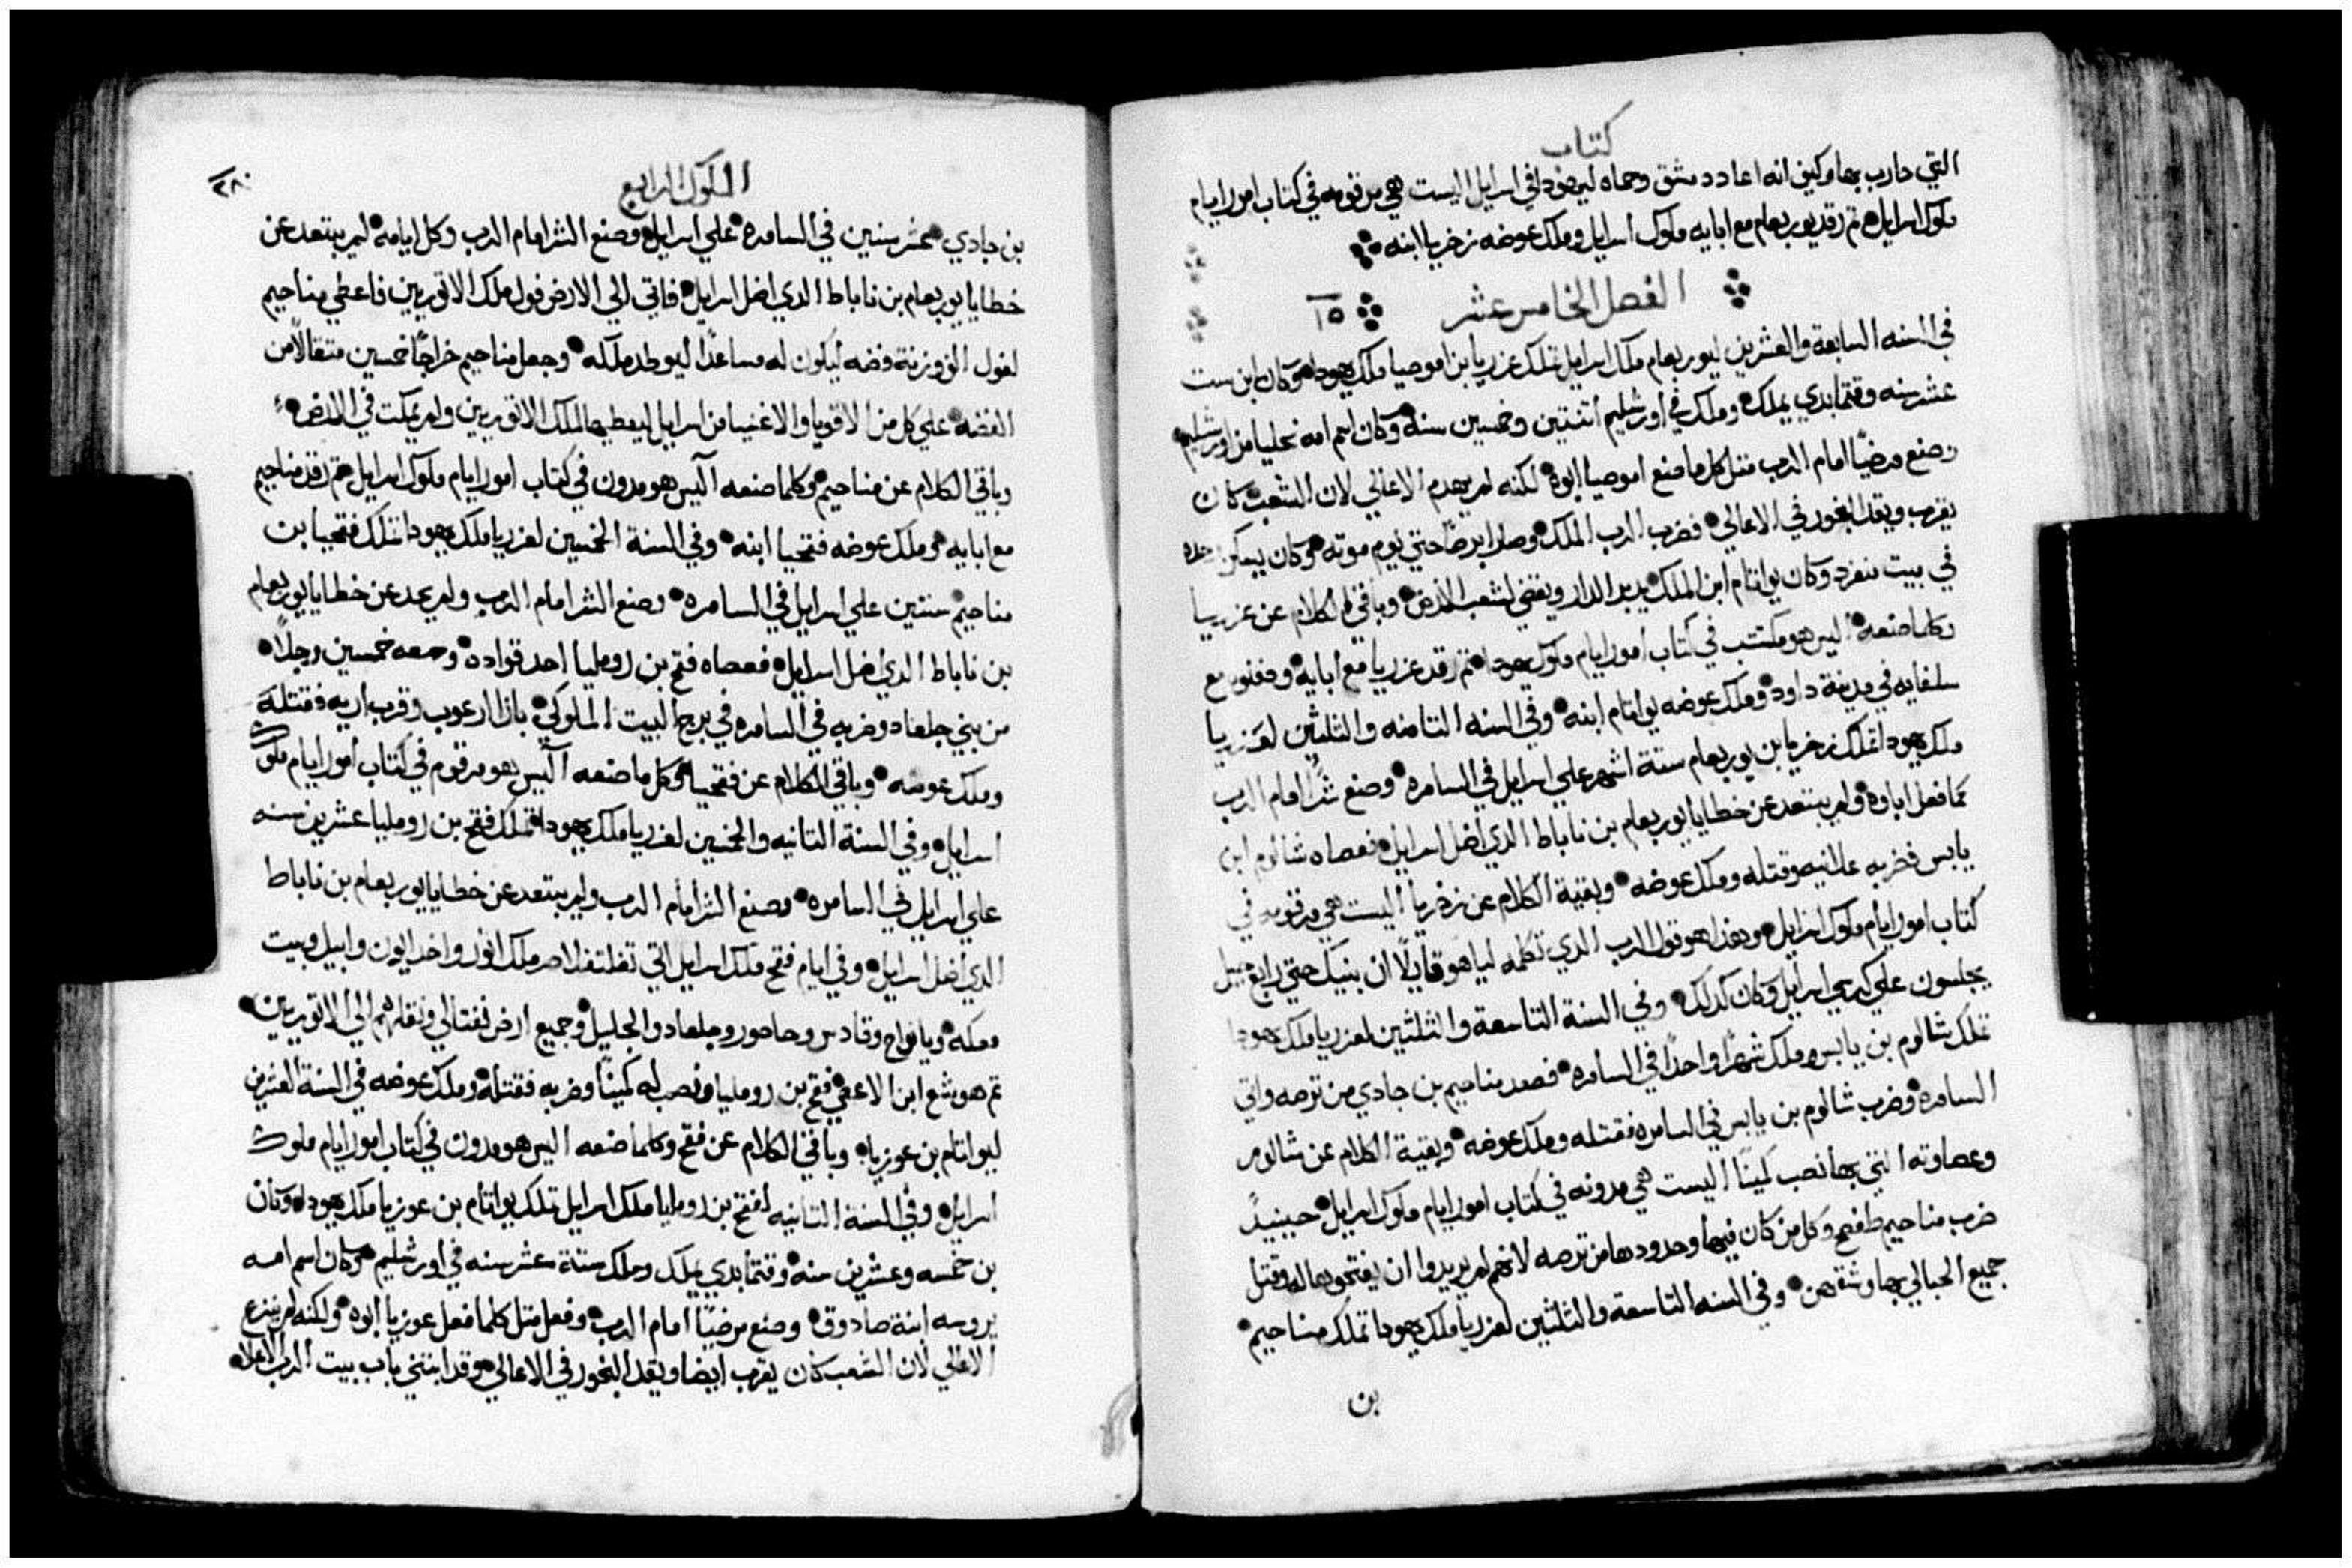 كتاب
التي حارب بها وكيف انه اعاد دمشق وحماه ليهودا في اسرايل اليست هي مرقومه في كتاب امور ايام
ملوك اسرايل ثم رقد يوربعام مع ابايه ملوك اسرايل وملك عوضه زخريا ابنه
الفصل الخامس عشر ١٥
في السنه السابعة والعشرين ليوربعام ملك اسرايل تملك عزريا بن اموصيا ملك يهودا وكان ابن ست
عشر سنه وقتما بدي يملك وملك في اورشليم اتنتين وخمسين سنة وكان اسم امه نحليا من اورشليم
وصنع مرضيًا امام الرب متل كل ما صنع اموصيا ابوه لكنه لم يهدم الاعالي لان الشعب كان
يقرب ويقد البخور في الاعالي فضرب الرب الملك وصار ابرصًا حتي يوم موته وكان يسكن وحده
في بيت منفرد وكان يواتام ابن الملك يدبر الدار ويقضي لشعب الارض وباقي الكلام عن عزريا
وكلما صنعه اليس هو مكتتب في كتاب امور ايام ملوك يهودا ثم رقد عزريا مع ابايه ودفنوه مع
سلفايه في مدينة داود وملك عوضه يواتام ابنه وفي السنه التامنه والثلثين لعزريا
ملك يهودا تملك زخريا بن يوربعام ستة اشهر علي اسرايل في السامره وصنع شرًا امام الرب
كما فعل اباوه ولم يبتعد عن خطايا يوربعام بن ناباط الدي اضل اسرايل فعصاه شالوم ابن
يابس فضربه علانيه وقتله وملك عوضه وبقية الكلام عن زخريا اليست هي مرقومه في
كتاب امور ايام ملوك اسرايل وهذا هو قول الرب الدي تكلمه لياهو قايلًا ان بنيك حتي رابع جيل
يجلسون علي كرسي اسرايل وكان كدلك وفي السنة التاسعة والثلثين لعزريا ملك يهودا
تملك شالوم بن يابس وملك شهرًا واحدًا في السامره فصعد مناحيم بن جادي من ترصه واتي
السامره وضرب شالوم بن يابس في السامره فقتله وملك عوضه وبقية الكلام عن شالوم
وعصاوته التي بها نصب كمينًا اليست هي مدونه في كتاب امور ايام ملوك اسرايل حينيدٍ
ضرب مناحيم طفح وكل من كان فيها وحدودها من ترصه لانهم لم يريدوا ان يفتحوها له وقتل
جميع الحبالي بها وشقهن وفي السنه التاسعة والثلثين لعزريا ملك يهودا تملك مناحيم
بن
الملوك الرابع
٢٨٠
بن جادي عشر سنين في السامره علي اسرايل وصنع الشر امام الرب وكل ايامه لم يبتعد عن
خطايا يوربعام بن ناباط الدي اضل اسرايل فاتي الي الارض فول ملك الاتوريين فاعطي مناحيم
لفول الف وزنة فضه ليكون له مساعدًا ليوطد ملكه وجعل مناحيم خراجًا خمسين متقالًا من
الفضه علي كل من الاقويا والاغنيا من اسرايل ليعطيها لملك الاتوريين ولم يمكت في الارض
وباقي الكلام عن مناحيم وكلما صنعه اليس هو مدون في كتاب امور ايام ملوك اسرايل ثم رقد مناحيم
مع ابايه وملك عوضه فتحيا ابنه وفي السنة الخمسين لعزريا ملك يهودا تملك فتحيا بن
مناحيم سنتين علي اسرايل في السامره وصنع الشر امام الرب ولم يحد عن خطايا يوربعام
بن ناباط الدي اضل اسرايل فعصاه فتح بن روميليا احد قواده ومعه خمسين رجلًا
من بني جلعاد وضربه في السامره في برج البيت الملوكي بازا ارعوب وقرب اريه فقتله
وملك عوضه وباقي الكلام عن فتحيا وكل ما صنعه اليس هو مرقوم في كتاب امور ايام ملوك
اسرايل وفي السنة التانيه والخمسين لعزريا ملك يهودا تملك فتح بن روميليا عشرين سنه
علي اسرايل في السامره وصنع الشر امام الرب ولم يبتعد عن خطايا يوربعام بن ناباط
الدي اضل اسرايل وفي ايام فتح ملك اسرايل اتي تغلتفلاصر ملك اتور واخد ايون وابيل وبيت
معكه ويانواح وقادس وحاصور وجلعاد والجليل وجميع ارض نفتالي ونقلهم الي الاتوريين
ثم هوشع ابن الا عقي فتح بن روميليا ونصب له كمينًا وضربه فقتله وملك عوضه في السنة العشرين
ليواتام بن عوزيا وباقي الكلام عن فتح وكلما صنعه اليس هو مدون في كتاب امور ايام ملوك
اسرايل وفي السنة التانيه لفتح بن روميليا ملك اسرايل تملك يواتام بن عوزيا ملك يهودا وكان
بن خمسه وعشرين سنه وقتما بدي يملك وملك ستة عشر سنه في اورشليم وكان اسم امه
يروسه ابنة صادوق وصنع مرضيًا امام الرب وفعل متل كلما فعل عوزيا ابوه ولكنه لم ينزع
الاعالي لان الشعب كان يقرب ايضا ويقد البخور في الاعالي وقد ابتني باب بيت الرب الاعلا